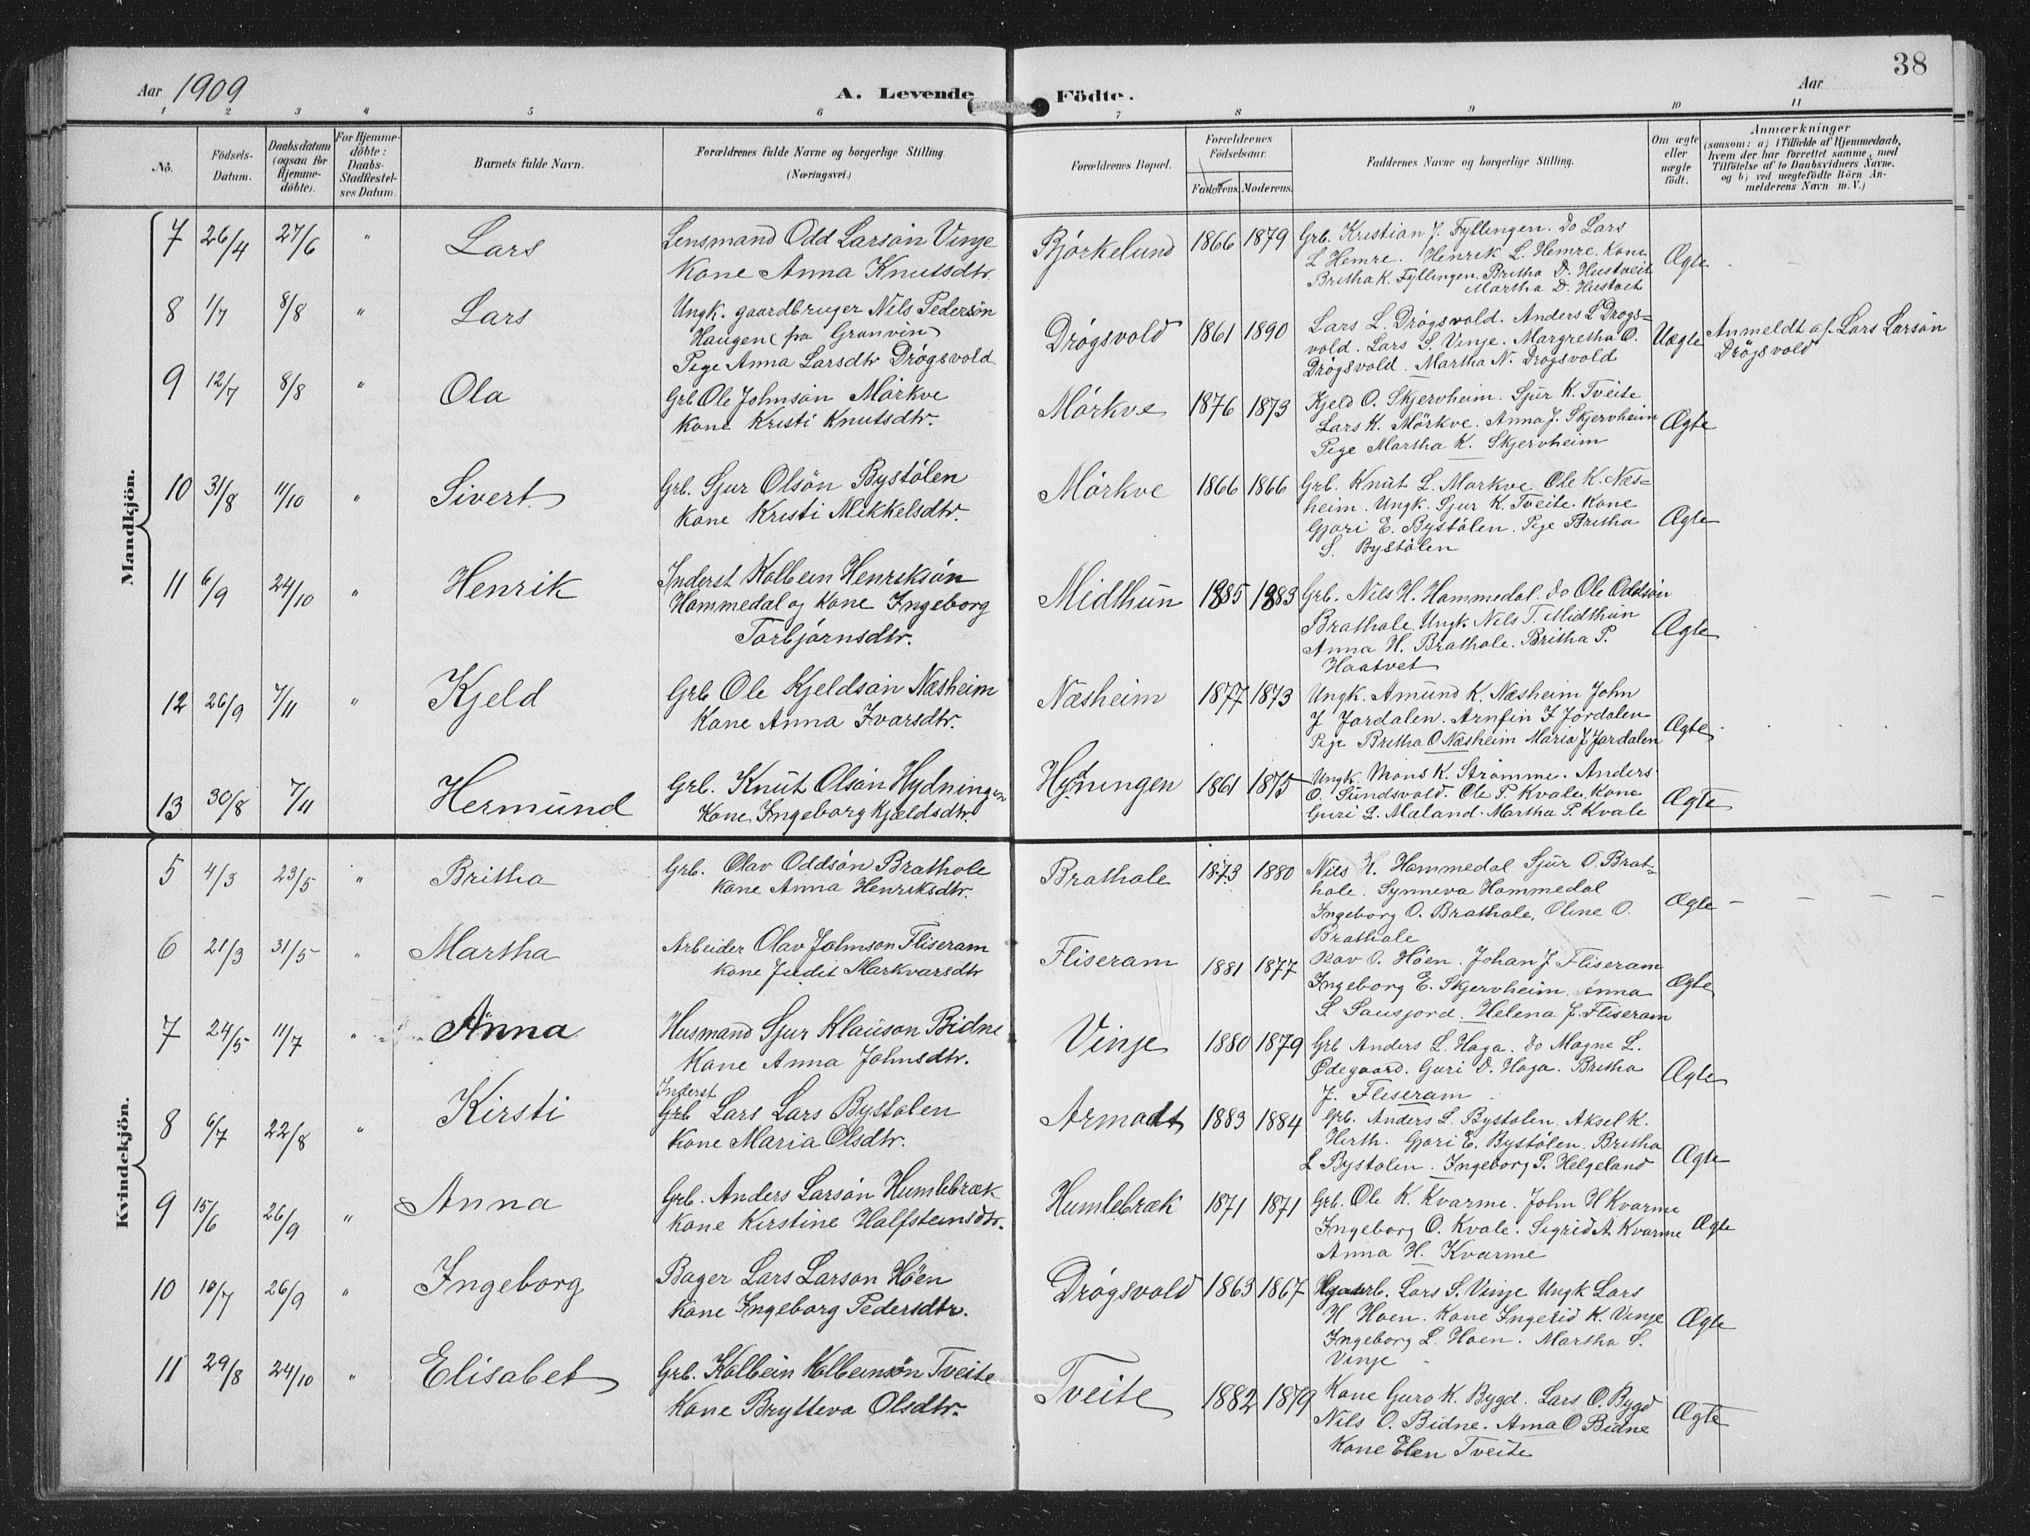 38
Aar 1909
A. Levende Födte.
Aar
1 2 3 4 5 6 7 8 9 10 11
No.
Födsels-
Datum.
Daabsdatum
(ogsaa for
Hjemme-
döbte).
For Hjemme-
döbte:
Daabs-
Stadfæstel-
ses Datum.
Barnets fulde Navn.
Forældrenes fulde Navne og borgerlige Stilling.
(Næringsvei.)
Forældrenes Bopæl.
Forældrenes
Födselsaar.
Faderens. Moderens.
Faddernes Navne og borgerlige Stilling.
Om ægte
eller
uægte
födt.
Anmærkninger
(saasom: a) i Tilfælde af Hjemmedaab,
hvem der har forrettet samme, med
Tilföielse af to Daabsvidners Navne.
og b) ved uægtefödte Börn An-
melderens Navn m. V.)
Mandkjön.
7 26/4 27/6 " Lars
Lensmand Odd Larsön Vinje
Kone Anna Knutsdtr.
Björkelund 1866 1879
Grb. Kristian J. Fyllingen. Do Lars
L Hemre. Henrik L. Hemre. Kone
Britha K. Fyllingen. Britha D. Hustveit
Martha D. Hustvet
Ægte
8 1/7 8/8 " Lars
Ungk. gaardbruger Nils Pedersön
Haugen (fra Granvin)
Pige Anna Larsdtr Drögsvold
Drögsvold 1861 1890
Lars L. Drögsvold. Anders L Drogs=
vold. Lars S. Vinje. Margretha O.
Drögsvold. Martha N. Drogsvold
Uægte
Anmeldt af Lars Larsön
Drögsvold
9 12/7 8/8 " Ola
Grb Ole Johnsön Mörkve
Kone Kristi Knutsdtr.
Mörkve 1876 1873
Kjeld O. Skjervheim. Sjur K. Tveite
Lars K. Mörkve. Anna J. Skjervheim
Pige Martha K. Skjervheim
Ægte
10 31/8 11/10 " Sivert
Grb. Sjur Olsön Bystölen
Kone Kristi Mikkelsdtr.
Mörkve 1866 1866
Grb. Knut L. Markve. Ole K. Næs=
heim. Ungk. Sjur K. Tveite. Kone
Gjori E. Bystölen. Pige Britha
S. Bystölen
Ægte
11 6/9 24/10 " Henrik
Inderst Kolbein Henriksön
Hommedal og Kone Ingeborg
Torbjörnsdtr.
Midthun 1885 1883
Grb. Nils H. Hammedal. do Ole Oddsön
Brathole. Ungk Nils T. Midthun
Anna H. Brathole. Britha P.
Haatvet
Ægte
12 26/9 7/11 " Kjeld
Grb Ole Kjeldsön Næsheim
Kone Anna Ivarsdtr.
Næsheim 1877 1873
Ungk. Amund K. Næsheim John
J Jordalen. Arnfin J Jordalen
Pige Britha O Næsheim Maria J Jordalen
Ægte
13 30/8 7/11 Hermund
Grb. Knut Olsön Hydningen
Kone Ingeborg Kjældsdtr.
Hydningen 1861 1875
Ungk. Mons K. Strömme. Anders
O. Sundsvold. Ole P. Kvale. Kone
Guri L. Mæland. Martha P. Kvale
Ægte
Kvindekjön.
5 4/3 23/5 " Britha
Grb. Olav Oddsön Brathole
Kone Anna Henriksdtr.
Brathole 1873 1880
Nils H. Hammedal Sjur O. Brat=
hole. Synneva Hommedal
Ingeborg O. Brathole, Oline O.
Brathole
Ægte
6 21/3 31/5 " Martha
Arbeider Olav Johnson Fliseram
Kone Judit Markvarsdtr
Fliseram 1881 1877
Olav O. Höen. Johan J Fliseram
Ingeborg E. Skjervheim. Anna
S Sausjord. Helena J. Fliseram
Ægte
7 24/5 11/7 " Anna
Husmand Sjur Klauson Bidne
Kone Anna Johnsdtr.
Vinje 1880 1879
Grb Anders L. Haga. do Magne L.
Ødegaard. Guri D. Haga. Britha
J. Fliseram
Ægte
8 6/7 22/8 " Kirsti
Inderst
Grb Lars Lars Bystolen
Kone Maria Olsdtr.
Armodt 1883 1884
Grb. Anders L. Bystolen. Aksel K.
Hirth. Gjori E. Bystölen. Britha
L Bystolen. Ingeborg S. Helgeland
Ægte
9 15/6 26/9 " Anna
Grb. Anders Larsön Humlebræk
Kone Kirstine Halfsteinsdtr.
Humlebræk 1871 1871
Grb. Ole K. Kvarme. John H Kvarme
Ingeborg O. Kvale. Sigrid A. Kvarme
Anna H. Kvarme
Ægte
10 10/7 26/9 " Ingeborg
Bager Lars Larson Höen
Kone Ingeborg Pedersdtr.
Drögsvold 1863 1867
Lars S. Vinje Ungk Lars
H Hoen. Kone Ingerid K. Vinje
Ingeborg L. Hoen. Martha S.
Vinje
Ægte
11 29/8 24/10 " Elisabet
Grb. Kolbein Kolbeinsön Tveite
Kone Brytteva Olsdtr.
Tveite 1882 1879
Kone Guro K. Bygd. Lars O. Bygd
Nils O. Bidne. Anna O Bidne
Kone Elen Tveite
Ægte